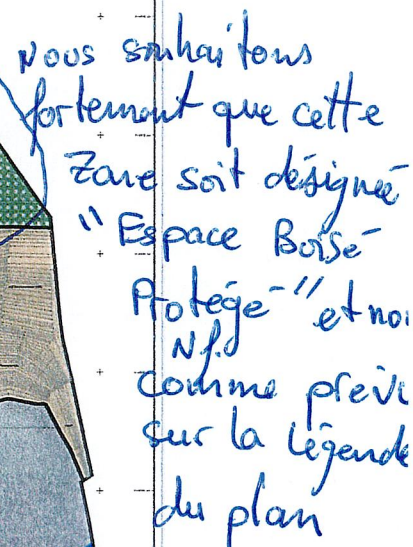 Nous souhaitons
fortement que cette
Zone soit désignée
"Espace Boisé
Protégé" et non
Nf.
comme prévu
sur la légende
du plan